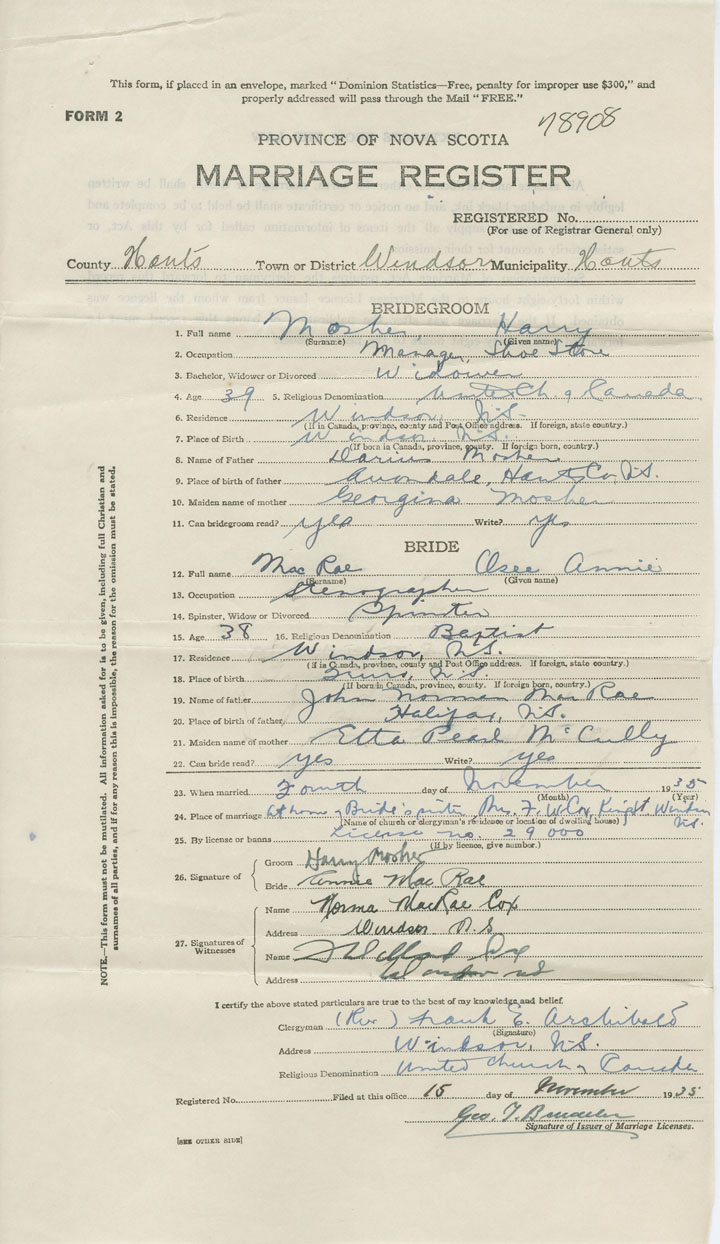 This form, if placed in an envelope, marked "Dominion Statistics—Free, penalty for improper use $300," and
properly addressed will pass through the Mail "FREE."
FORM 2
78908
PROVINCE OF NOVA SCOTIA
MARRIAGE REGISTER
REGISTERED No.
(For use of Registrar General only)
County Hants Town or District Windsor Municipality Hants
BRIDEGROOM
1. Full name Mosher, Harry
(Surname) (Given name)
2. Occupation Manager, Shoe Store
3. Bachelor, Widower or Divorced Widower
4. Age 39 5. Religious Denomination United Ch. of Canada
6. Residence Windsor, N.S.
(If in Canada, province, county and Post Office address. If foreign, state country.)
7. Place of Birth Windsor N.S.
(If born in Canada, province, county. If foreign born, country.)
8. Name of Father Darius Mosher
9. Place of birth of father Avondale, Hants Co. N.S.
10. Maiden name of mother Georgina Mosher
11. Can bridegroom read? yes Write? yes
BRIDE
12. Full name MacRae Annie
(Surname) (Given name)
13. Occupation Stenographer
14. Spinster, Widow or Divorced Spinster
15. Age 38 16. Religious Denomination Baptist
17. Residence Windsor, N.S.
(If in Canada, province, county and Post Office address. If foreign, state country.)
18. Place of birth Truro, N.S.
(If born in Canada, province, county. If foreign born, country.)
19. Name of father John Norman MacRae
20. Place of birth of father Halifax, N.S.
21. Maiden name of mother Etta Pearl McCully
22. Can bride read? yes Write? yes
23. When married Fourth day of November 1935
(Month) (Year)
24. Place of marriage At home of Bride's sister, Mrs. F. W. Cox, King St Windsor N.S.
[Name of church or clergyman's residence or location of dwelling house]
25. By license or banns License no. 29000
(If by licence, give number.)
26. Signature of
Groom Harry Mosher
Bride Annie MacRae
27. Signatures of Witnesses
Name Norma MacRae Cox
Address Windsor N.S.
Name Cox
Address Windsor NS
I certify the above stated particulars are true to the best of my knowledge and belief.
Clergyman (Rev.) Frank E. Archibald
(Signature)
Address Windsor, N.S.
Religious Denomination United Church of Canada
Registered No. Filed at this office 15 day of November 1935
Geo. T.
Signature of Issuer of Marriage Licenses.
[SEE OTHER SIDE]
NOTE.—This form must not be mutilated. All information asked for is to be given, including full Christian and
surnames of all parties, and if for any reason this is impossible, the reason for the omission must be stated.